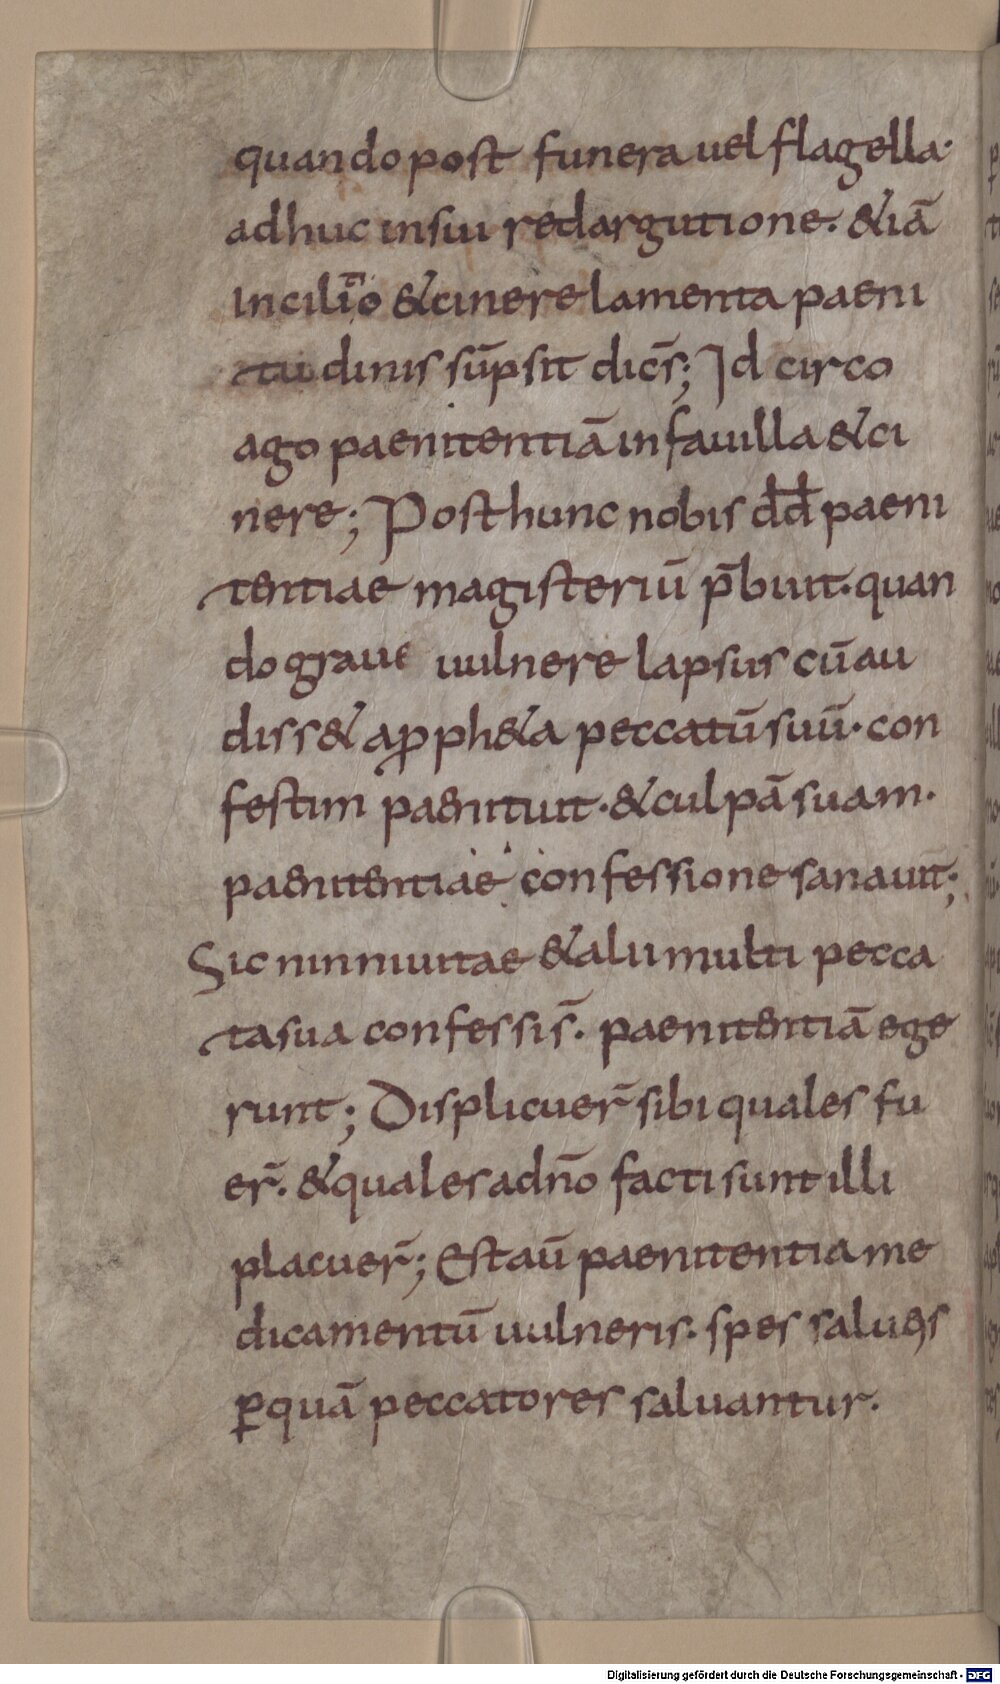 quando post funera uel flagella·
adhuc insui redargutione. &iā
Incilitio &cinere lamenta paeni
tudinis sūpsit dicēs; Id circo
ago paenitentiā in fauilla &ci
nere; Post hunc nobis dd̄ paeni
tentiae magisteriū p̄buit· quan
do graue uulnere lapsus cū au
diss& a ꝓph&a peccatū suū· con
festim paenituit· &culpā suam·
paenitentiae confessione sanauit;
Sic niniuitae &alii multi pecca
ta sua confessīs. paenitentiā ege
runt; Displicuer̄ sibi quales fu
er̄. &quales ad dn̄o facti sunt illi
placuer̄; Est aū paenitentia me
dicamentū uulneris. spes salutis
ꝑquā peccatores saluantur.
Digitalisierung gefördert durch die Deutsche Forschungsgemeinschaft - DFG